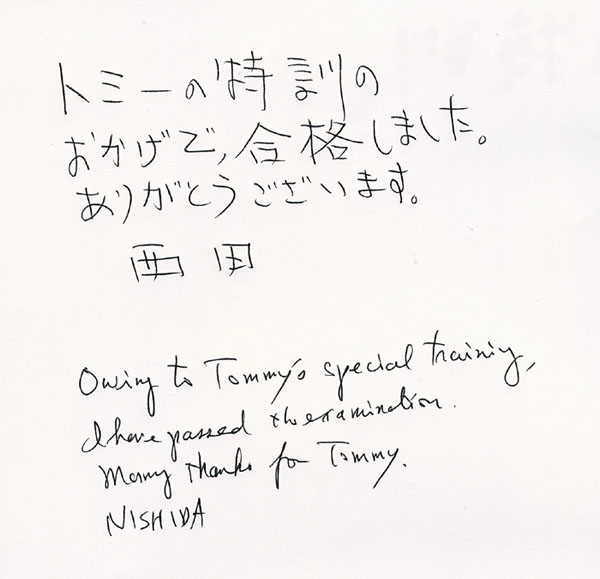 トミーの特訓の
おかげで,合格しました。
ありがとうございます。
西田
Owing to Tommy's special training,
I have passed the examination.
Many thanks for Tommy.
NISHIDA